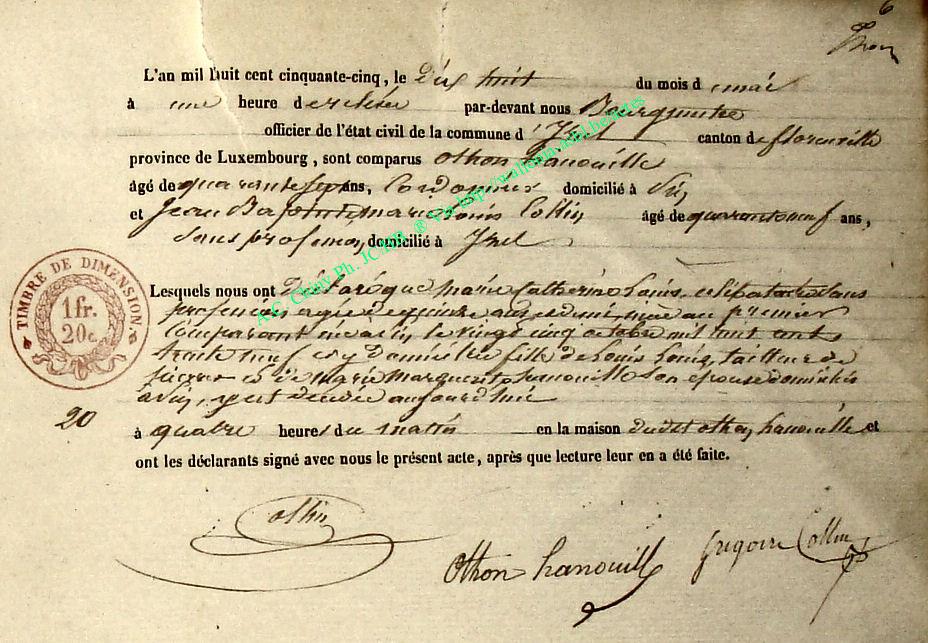 6
L'an mil huit cent cinquante-cinq, le Dix huit du mois d mai
à une heure d par-devant nous Bourgmestre
officier de l'état civil de la commune d'Izel canton de florenville
province de Luxembourg, sont comparus Othon hanouille
âgé de quarante sept ans, Cordonnier domicilié à
et Jean Baptiste marie Louis Collin, âgé de quarante neuf ans,
Sans profession, domicilié à Izel
Lesquels nous ont Déclaré que marie Catherine Louis, célibataire sans
profession, agée de quinze ans et demi, nièce au premier
Comparant née à le vingt cinq octobre mil huit cent
trente neuf et y domiciliée fille de Louis Louis, tailleur de
pierres et de Marie Marguerite hanouille son épouse domiciliés
à est décédée aujourd'hui
à quatre heures du matin en la maison dudit othon hanouille et
ont les déclarants signé avec nous le présent acte, après que lecture leur en a été faite.
TIMBRE DE DIMENSION
1 fr.
20 c.
20
A.G. Chiny Ph. JC HB ® Via http://wallonia.asbl.be.actes
Collin
Othon hanouille
Grégoire Collin